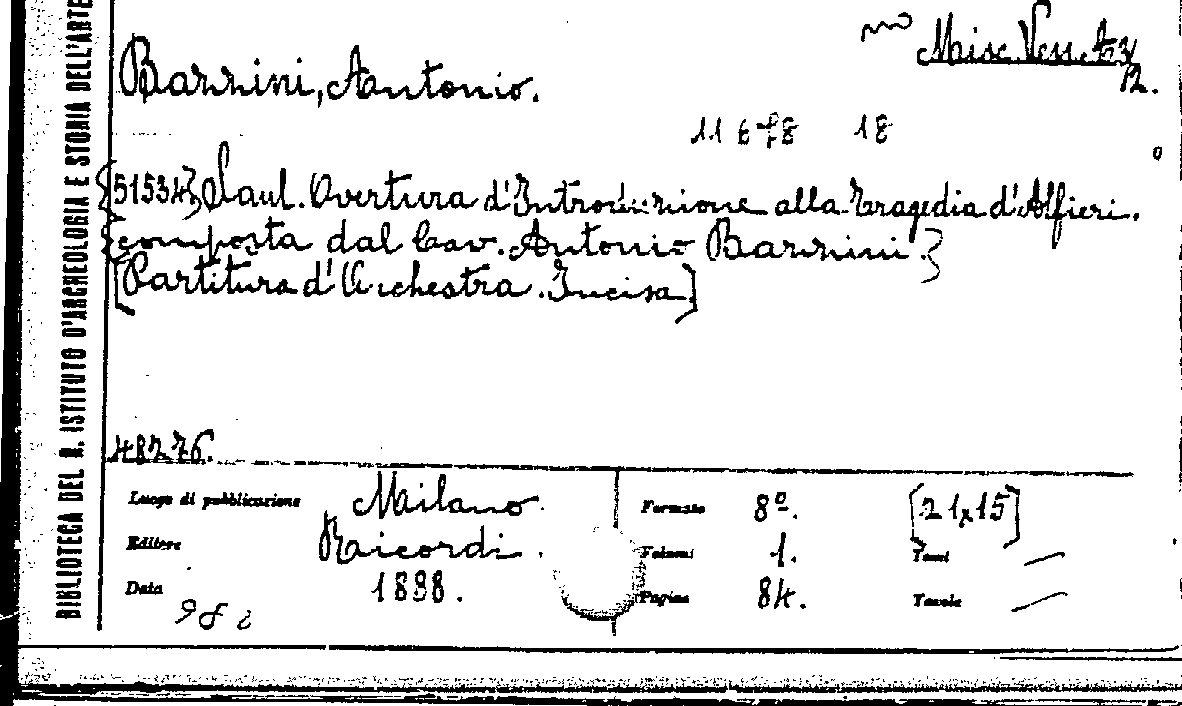 BIBLIOTECA DEL R. ISTITUTO D'ARCHEOLOGIA E STORIA DELL'ARTE
Misc. Vess. A3/
12.
Bazzini, Antonio.
11 6 78 18
{51534} Saul. Overtura d'Introduzione alla Tragedia d'Alfieri.
{composta dal Cav. Antonio Bazzini.}
[Partitura d'Orchestra. Incisa]
48276.
Luogo di pubblicazione Milano
Formato 8º. [21x15]
Editore Ricordi.
Volumi 1. Tomi —
Data 1898.
Pagine 84. Tavole —